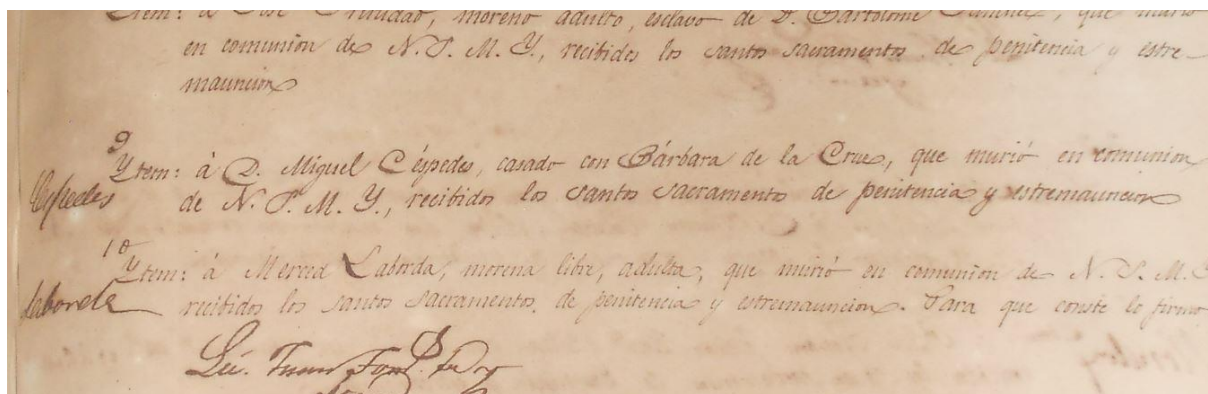 Ytem: à José Trinidad, moreno adulto, esclavo de D. Bartolomé que murió
en comunion de N. S. M. Y., recibidos los santos sacramentos de penitencia y estre-
mauncion
9
Ytem: à D. Miguel Céspedes, casado con Bárbara de la Cruz, que murió en comunion
Céspedes de N. S. M. Y., recibidos los santos sacramentos de penitencia y estremauncion
10
Ytem: à Merced Laborda, morena libre, adulta, que murió en comunion de N. S. M.
Laborde recibidos los santos sacramentos de penitencia y estremauncion. Para que conste lo firmo
Lic. Juan